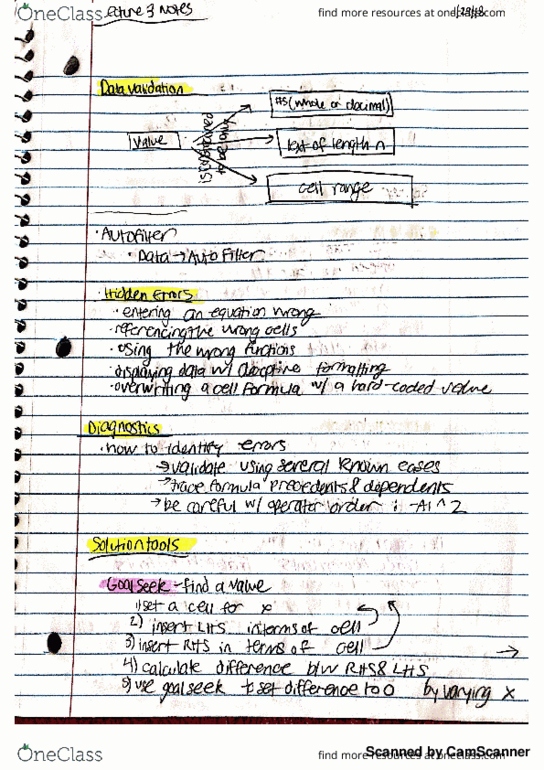 OneClass
find more resources at oneclass.com
Lecture 3 Notes
Data validation
Value
is constrained to be only
#s (whole or decimal)
text of length n
cell range
· Autofilter
· Data → Auto Filter
Hidden Errors
· entering an equation wrong
· referencing the wrong cells
· using the wrong functions
· displaying data w/ deceptive formatting
· overwriting a cell formula w/ a hard-coded value
Diagnostics
· how to identify errors
→ validate using several known cases
→ trace formula precedents & dependents
→ be careful w/ operator order : -A1^2
Solution tools
Goal seek - find a value
1) set a cell for x
2) insert LHS in terms of cell
3) insert RHS in terms of cell
4) calculate difference b/w RHS & LHS
5) use goal seek to set difference to 0 by varying x
OneClass
find more resources at oneclass.com
Scanned by CamScanner